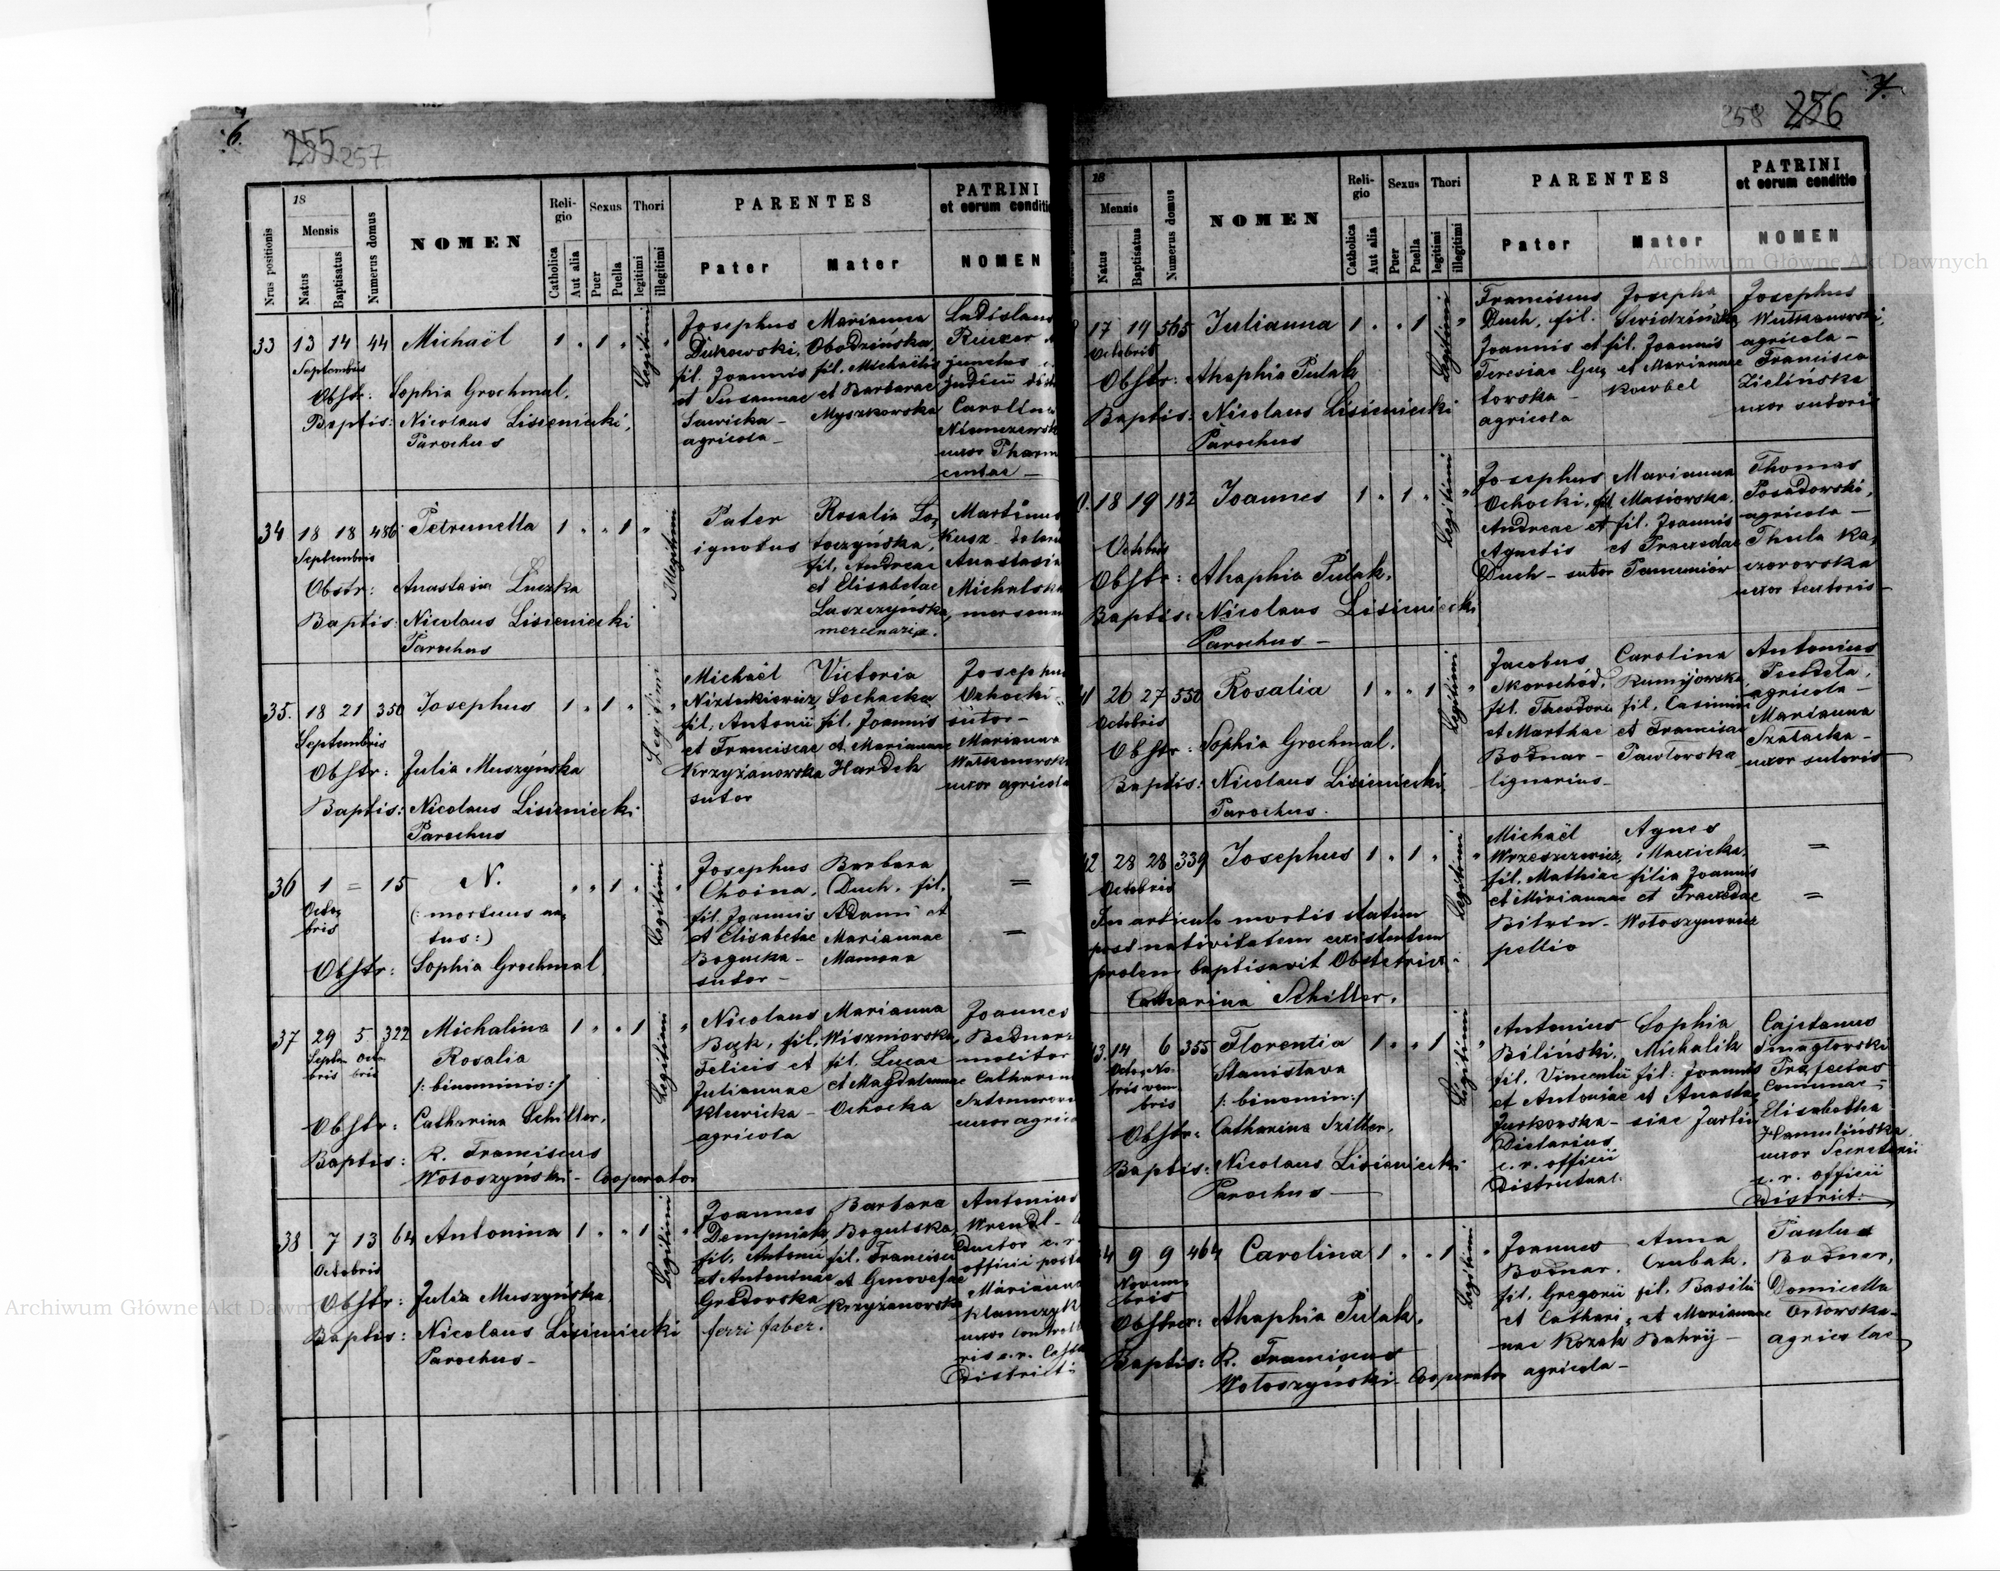 6.
255 257
18
Nrus positionis
Mensis
Natus
Baptisatus
Numerus domus
NOMEN
Reli-
gio
Catholica
Aut alia
Sexus
Puer
Puella
Thori
legitimi
illegitimi
PARENTES
Pater
Mater
PATRINI
et eorum conditio
NOMEN
33 13 14 44 Michaël 1 " 1 " Legitimi "
Septembris
Obstr: Sophia Grochmal.
Baptis: Nicolaus Lisieniecki,
Parochus
Josephus
Dukowski,
fil. Joannis
et Susannae
Sawicka -
agricola -
Marianna
Obodzińska
fil. Michaëlis
et Barbarae
Myszkowska
Ladislaus
judicii
Carolina
uxor Pharm
34 18 18 486 Petrunella 1 " " 1 " Illegitimi
Septembris
Obstr: Anastasia Luczka
Baptis: Nicolaus Lisieniecki
Parochus
Pater
ignotus
Rosalia Lo,
toczyńska,
fil. Andreae
et Elisabetae
Luszczyńska,
mercenaria.
Martinus
Kusz
Anastasia
Michalska
35. 18 21 350 Josephus 1 " 1 " Legitimi "
Septembris
Obstr: Julia Muszyńska
Baptis: Nicolaus Lisieniecki
Parochus
Michaël
fil. Antonii
et Franciscae
Krzyżanowska
sutor
Victoria
Sochacka
fil. Joannis
et Mariannae
Hardek
Josephus
Ochocki -
sutor -
Marianna
uxor agricola
36 1 = 15 N. " " 1 " Legitimi "
Octo,
bris
(: mortuus na,
tus :)
Obstr: Sophia Grochmal
Josephus
Choina,
fil. Joannis
et Elisabetae
Bogucka -
sutor -
Barbara
Duch, fil.
Adami et
Mariannae
Mamona
=
=
37 29 5 322 Michalina 1 " " 1 Legitimi "
Septem Octo
bris bris
Rosalia
/: binominis :/
Obstr: Catharina Schiller,
Baptis: R. Franciscus
Wołoszyński - Cooperator
Nicolaus
Bąk, fil.
Felicis et
Juliannae
Kluricka -
agricola
Marianna
Wiszniowska,
fil. Lucae
et Magdalenae
Ochocka
Joannes
Bednarz
molitor
Catharina
uxor agricola
38 7 13 64 Antonina 1 " " 1 Legitimi "
Octobris
Obstr: Julia Muszyńska,
Baptis: Nicolaus Lisieniecki
Parochus -
Joannes
Dempniak,
fil. Antonii
et Antoninae
Gradowska
ferri faber.
Barbara
Bogulska,
fil. Francisci
et Genovefae
Krzyżanowska
Antonius
Wrendl -
ductor c. r.
officii postal
Marianna
Klamczyk
uxor
District:
7.
258 256
18
Mensis
Natus
Baptisatus
Numerus domus
NOMEN
Reli-
gio
Catholica
Aut alia
Sexus
Puer
Puella
Thori
legitimi
illegitimi
PARENTES
Pater
Mater
PATRINI
et eorum conditio
NOMEN
17 19 565 Julianna 1 " " 1 Legitimi "
Octobris
Obstr: Ahaphia Pulak
Baptis: Nicolaus Lisieniecki
Parochus
Franciscus
Duch, fil.
Joannis et
Teresiae Guz
towska -
agricola
Josepha
Swidzińska,
fil. Joannis
et Mariannae
Josephus
agricola -
Francisca
Zielińska
uxor sutoris
18 19 182 Joannes 1 " 1 " Legitimi "
Octobris
Obstr: Ahaphia Pulak,
Baptis: Nicolaus Lisieniecki
Parochus -
Josephus
Ochocki, fil
Andreae et
Agnetis
Duch - sutor
Marianna
Masiorska,
fil. Joannis
et Praxedae
Thomas
Posadowski,
agricola -
Thecla Ka,
czorowska
uxor textoris -
26 27 550 Rosalia 1 " " 1 Legitimi "
Octobris
Obstr: Sophia Grochmal.
Baptis: Nicolaus Lisieniecki,
Parochus.
Jacobus
Skorochód,
fil. Theodori
et Marthae
Bodnar -
lignarius -
Carolina
fil. Casimiri
et Franciscae
Pawłowska
Antonius
agricola -
Marianna
Szałacka -
uxor sutoris
42 28 28 339 Josephus 1 " 1 " Legitimi "
Octobris
In articulo mortis statim
post nativitatem existentem
prolem baptisavit Obstetrix -
Catharina Schiller.
Michaël
Wrzeszczewicz,
fil. Mathiae
et Mariannae
Bilvin -
pellio
Agnes
filia Joannis
et Praxedae
Wołoszynowicz
=
=
14 6 355 Florentia 1 " " 1 Legitimi "
Octo, No-
bris vem
bris
Stanislava
/: binomin :/
Obstr: Catharina Sziller,
Baptis: Nicolaus Lisieniecki
Parochus -
Antonius
Biliński,
fil. Vincentii
et Antoniae
Jurkowska -
Dietarius
c. r. officii
Districtual.
Sophia
Michalik
fil: Joannis
et Anasta,
siae
Cajetanus
Smagłowski
Praefectus
Communae -
Elisabetha
Hamulińska
uxor Secretarii
c. r. officii
District:
9 9 464 Carolina 1 " " 1 Legitimi "
Novem,
bris
Obstr: Ahaphia Pulak,
Baptis: R. Franciscus
Wołoszyński - Cooperator
Joannes
Bodnar,
fil. Gregorii
et Cathari,
nae Kozak
agricola -
Anna
Czubak,
fil. Basilii
et Mariannae
Bahrij -
Paulus
Bodnar,
Domicella
Orłowska -
agricolae
Archiwum Główne Akt Dawnych
Archiwum Główne Akt Dawnych